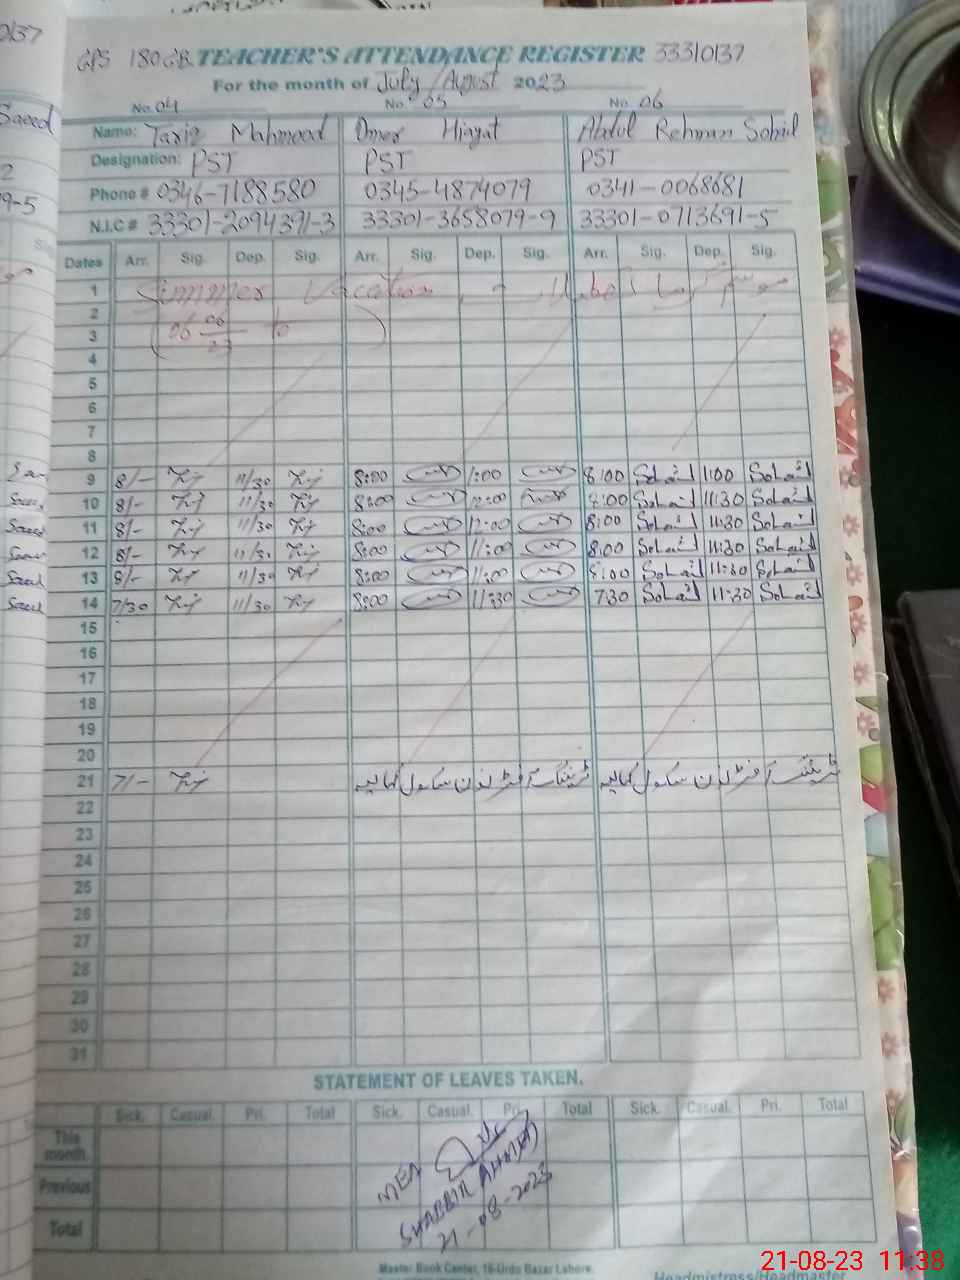 0137
GPS 180 GB TEACHER'S ATTENDANCE REGISTER 33310137
For the month of July/August 2023
No. 04 No. 05 No. 06
Saeed
Name: Tariq Mahmood Omer Hiayat Abdul Rehman Sohail
Designation: PST PST PST
Phone # 0346-7188580 0345-4874079 0341-0068681
N.I.C # 33301-2094391-3 33301-3658079-9 33301-0713691-5
Dates Arr. Sig. Dep. Sig. Arr. Sig. Dep. Sig. Arr. Sig. Dep. Sig.
1 Summer Vacation موسم گرما
2
3 (06 06 23 to )
4
5
6
7
8
9 8/- 11/30 8:00 1:00 8:00 Sohail 1:00 Sohail
10 8/- 11/30 8:00 12:00 8:00 Sohail 11:30 Sohail
Saeed 11 8/- 11/30 8:00 12:00 8:00 Sohail 11:30 Sohail
12 8/- 11/30 8:00 11:00 8:00 Sohail 11:30 Sohail
Saeed 13 8/- 11/30 8:00 11:00 8:00 Sohail 11:30 Sohail
Saeed 14 7/30 11/30 8:00 11:30 7:30 Sohail 11:30 Sohail
15
16
17
18
19
20
21 7/- سکول کمالیہ سکول کمالیہ
22
23
24
25
26
27
28
29
30
31
STATEMENT OF LEAVES TAKEN.
Sick. Casual. Pri. Total Sick. Casual. Pri. Total Sick. Casual. Pri. Total
This month.
Previous
Total
MEA
SHABBIR AHMAD
21-08-2023
Master Book Center, 16-Urdu Bazar Lahore.
Headmistress/Headmaster
21-08-23 11:38